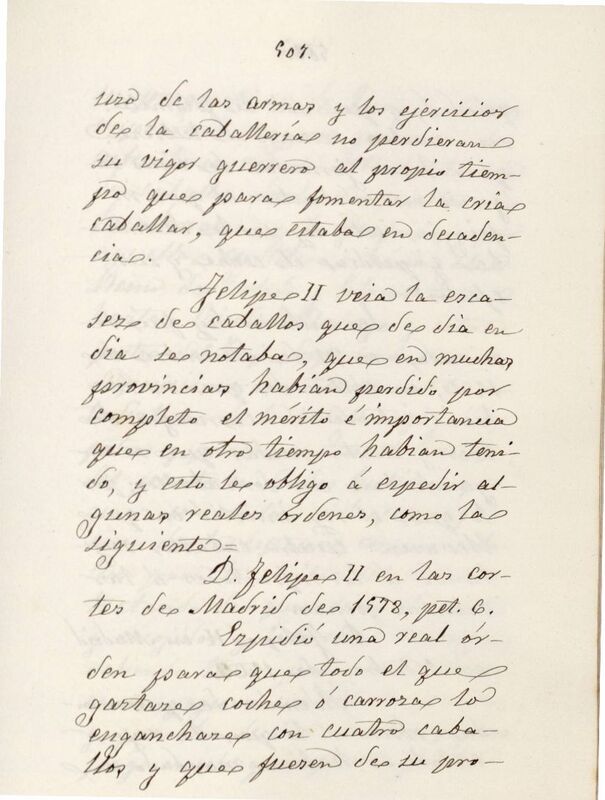 507.
uso de las armas y los ejercicios
de la caballería no perdieran
su vigor guerrero al propio tiem-
po que para fomentar la cria
caballar, que estaba en decaden-
cia.
Felipe II veia la esca-
sez de caballos que de dia en
dia se notaba, que en muchas
provincias habian perdido por
completo el mérito é importancia
que en otro tiempo habian teni-
do, y esto le obligo á espedir al-
gunas reales órdenes, como la
siguiente =
D. Felipe II en las cor-
tes de Madrid de 1578, pet. 6.
Espidió una real ór-
den para que todo el que
gastare coche ó carroza lo
enganchare con cuatro caba-
llos y que fuesen de su pro-